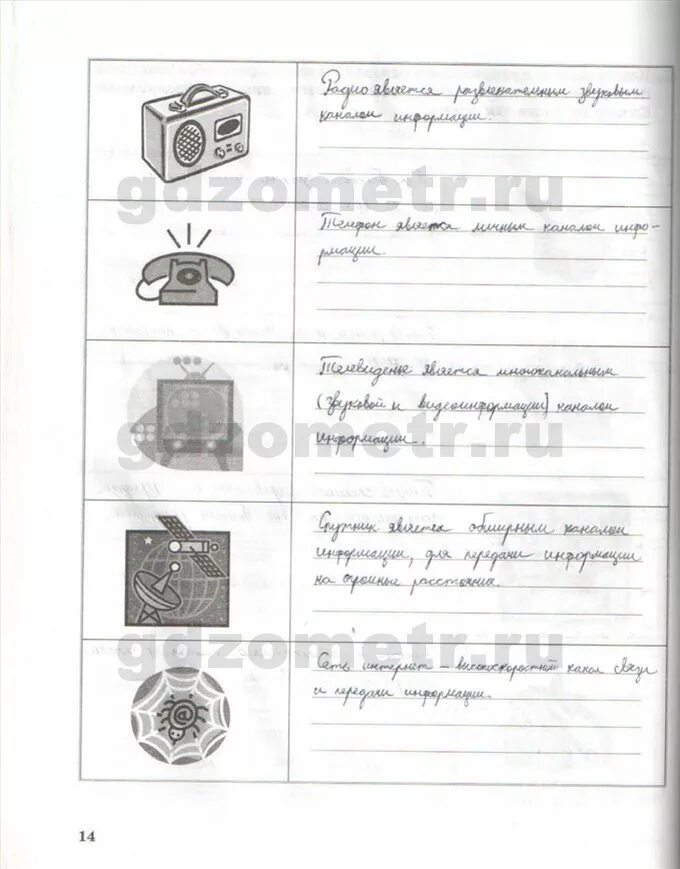 Радио является развлекательным звуковым
каналом информации.
gdzometr.ru
Телефон является личным каналом инфо-
рмации.
Телевиденье является многоканальным
(звуковой и видеоинформации) каналом
gdzometr.ru
информации.
Спутник является обширным каналом
информации, для передачи информации
на огромные расстояния.
gdzometr.ru
Сеть интернет – высокоскоростной канал связи
и передачи информации.
14